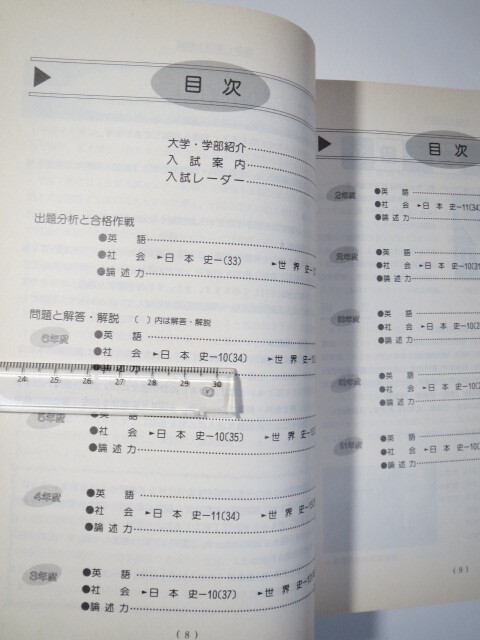 目次
大学・学部紹介
入試案内
入試レーダー
出題分析と合格作戦
●英語
●社会 ►日本史—(33) ►世界史—
●論述力
問題と解答・解説 ( )内は解答・解説
6年度 ●英語
●社会 ►日本史—10(34) ►世界史—
●論述力
24 25 26 27 28 29 30
5年度 ●英語
●社会 ►日本史—10(35) ►世界史—
●論述力
4年度 ●英語
●社会 ►日本史—11(34) ►世界史—
●論述力
3年度 ●英語
●社会 ►日本史—10(37) ►世界史
●論述力
(8)
目次
2年度 ●英語
●社会 ►日本史—11(34)
●論述力
元年度 ●英語
●社会 ►日本史—10(31
●論述力
●英語
●社会 ►日本史—10(
●論述力
●英語
●社会 ►日本史—10(
●論述力
61年度 ●英語
●社会 ►日本史—10(
●論述力
(9)